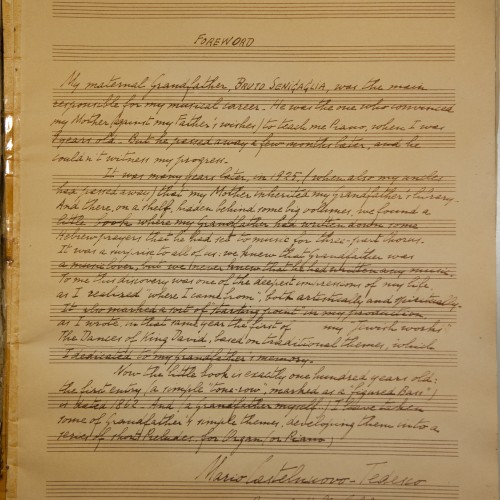 FOREWORD
My maternal Grandfather, BRUTO SENIGAGLIA, was the main
responsible for my musical career. He was the one who convinced
my Mother (against my Father's wishes) to teach me Piano, when I was
8 years old. But he passed away a few months later, and he
couldn't witness my progress.
It was many years later, in 1925, (when also my uncles
had passed away) that my Mother inherited my grandfather's library.
And there, on a shelf, hidden behind some big volumes, we found a
little book where my Grandfather had written down some
Hebrew prayers that he had set to music for three-part chorus.
It was a surprise to all of us: we knew that Grandfather was
a music lover, but we never knew that he had written any music.
To me this discovery was one of the deepest impressions of my life,
as I realized "where I came from", both artistically and spiritually.
It also marked a sort of "starting point" in my production
as I wrote, in that same year the first of my "Jewish works"
The Dances of King David, based on traditional themes, which
I dedicated to my grandfather's memory.
Now the little book is exactly one hundred years old:
the first entry (a simple "tone-row", marked as a "figured Bass")
is dated 1862. And (a grandfather myself) I have taken
some of Grandfather's simple themes, developing them into a
series of short Preludes for Organ, or Piano;
Mario Castelnuovo-Tedesco